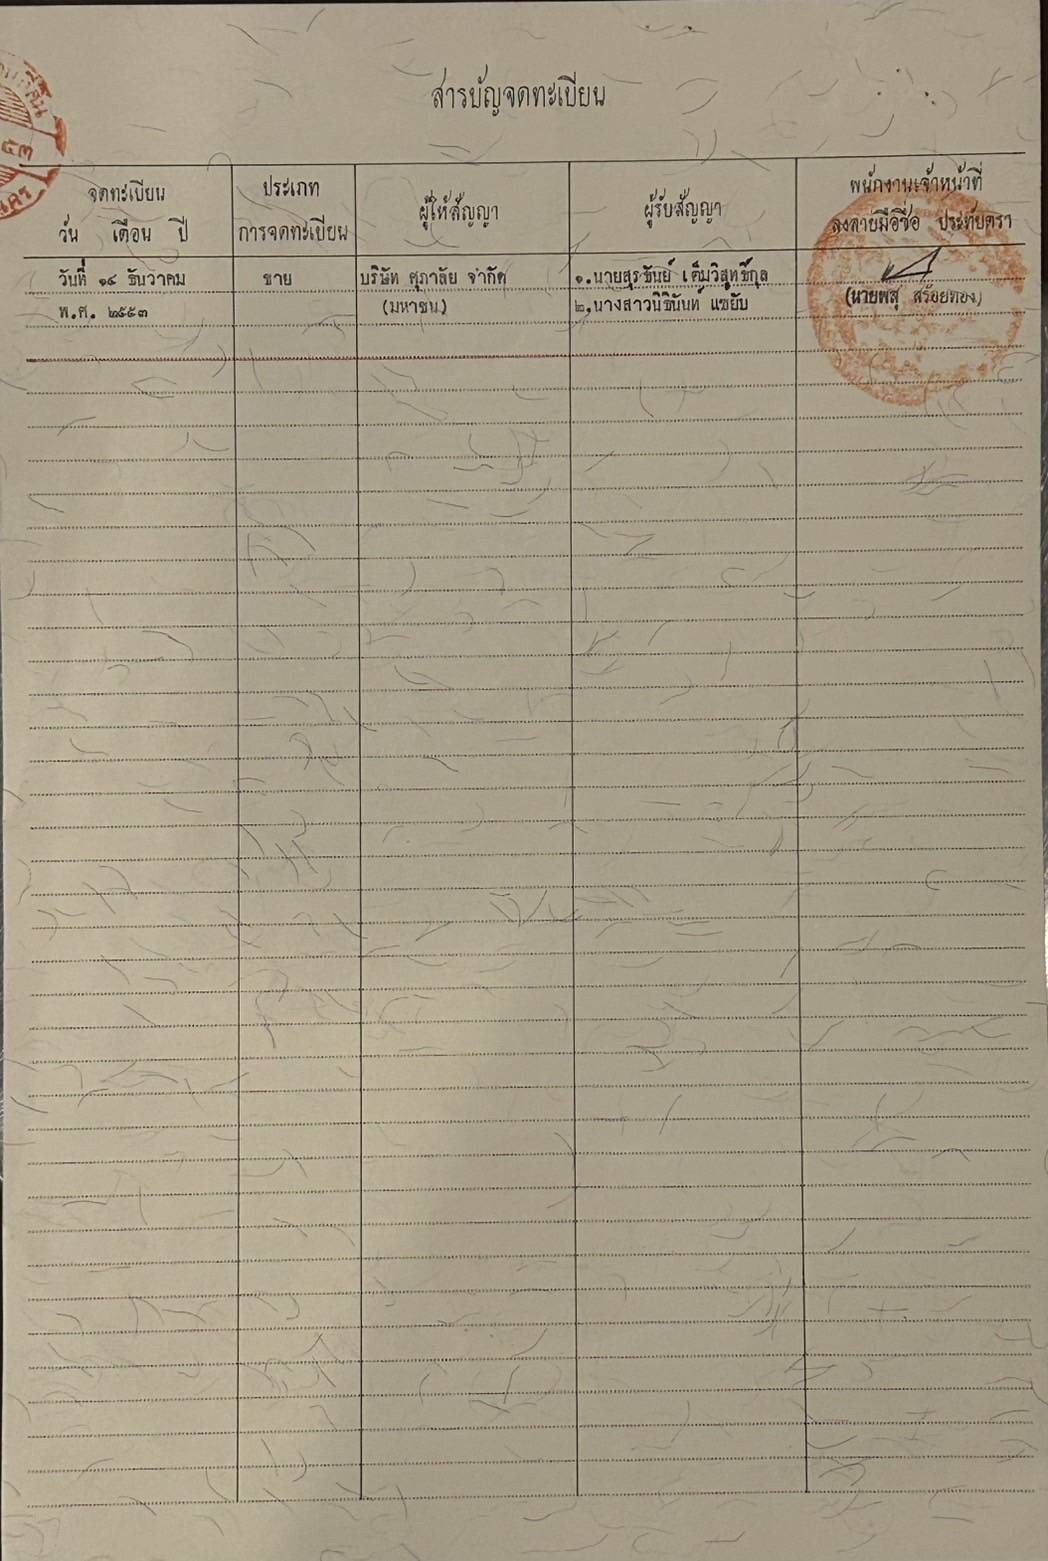 สารบัญจดทะเบียน
จดทะเบียน
วัน เดือน ปี
ประเภท
การจดทะเบียน
ผู้ให้สัญญา
ผู้รับสัญญา
พนักงานเจ้าหน้าที่
ลงลายมือชื่อ ประทับตรา
วันที่ ๑๔ ธันวาคม ขาย บริษัท ศุภาลัย จำกัด ๑.นายสุรชันย์ เต็มวิสุทธิ์กุล
พ.ศ. ๒๕๕๓ (มหาชน) ๒.นางสาวนิธินันท์ แซยับ (นายพสุ สร้อยทอง)